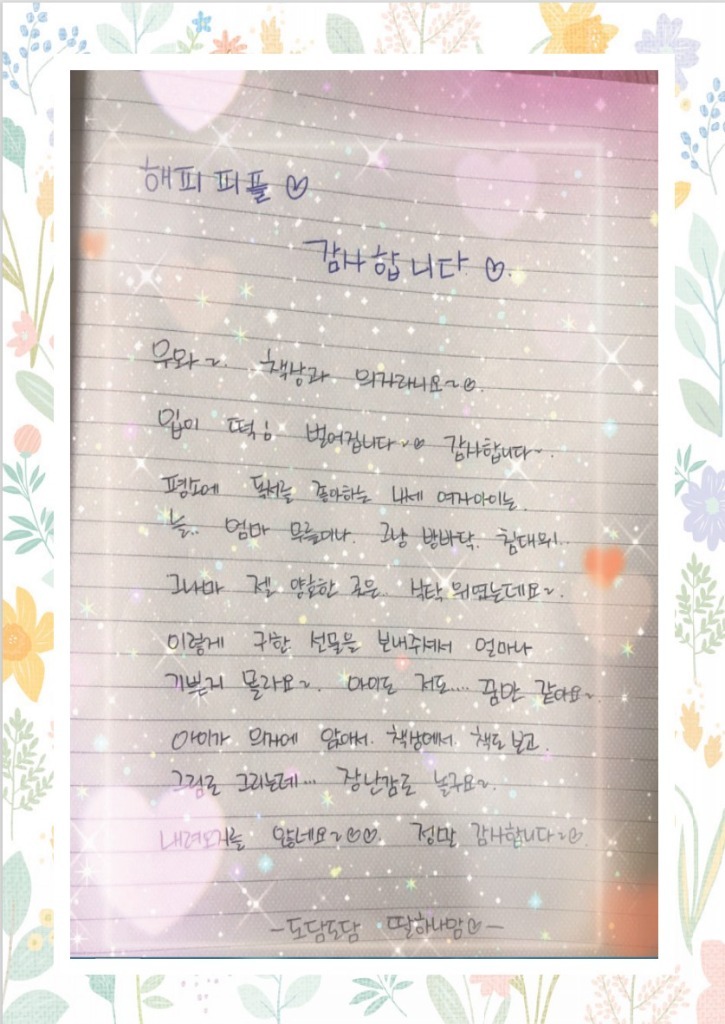 해피피플 ♡
감사합니다 ♡.
우와~. 책상과 의자라니요~♡.
입이 떡; 벌어집니다~♡ 감사합니다~.
평소에 독서를 좋아하는 내 여자아이는.
늘.. 엄마 무릎이나. 그냥 방바닥. 침대위..
그나마 젤 양호한 곳은.. 식탁 위였는데요~.
이렇게 귀한 선물을 보내주셔서 얼마나
기쁜지 몰라요~. 아이도 저도.... 꿈만 같아요~.
아이가 의자에 앉아서. 책상에서. 책도 보고.
그림도 그리는데... 장난감도 놀구요~.
내려오지를 않네요~♡♡. 정말 감사합니다~♡.
-도담도담 딸하나맘♡-